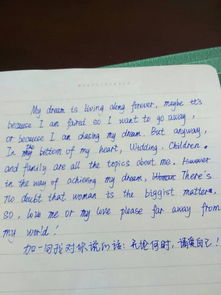 My dream is living along forever, maybe it's
because I am faired so I want to go away,
or because I am chasing my dream. But anyway,
In the bottom of my heart, Wedding, Children.
and family are all the topics about me. However
in the way of achieving my dream, There's
no doubt that woman is the biggest matters.
so, love me or my love please far away from
my world!
加一句我对你说的话: 无论何时, 请爱自己!